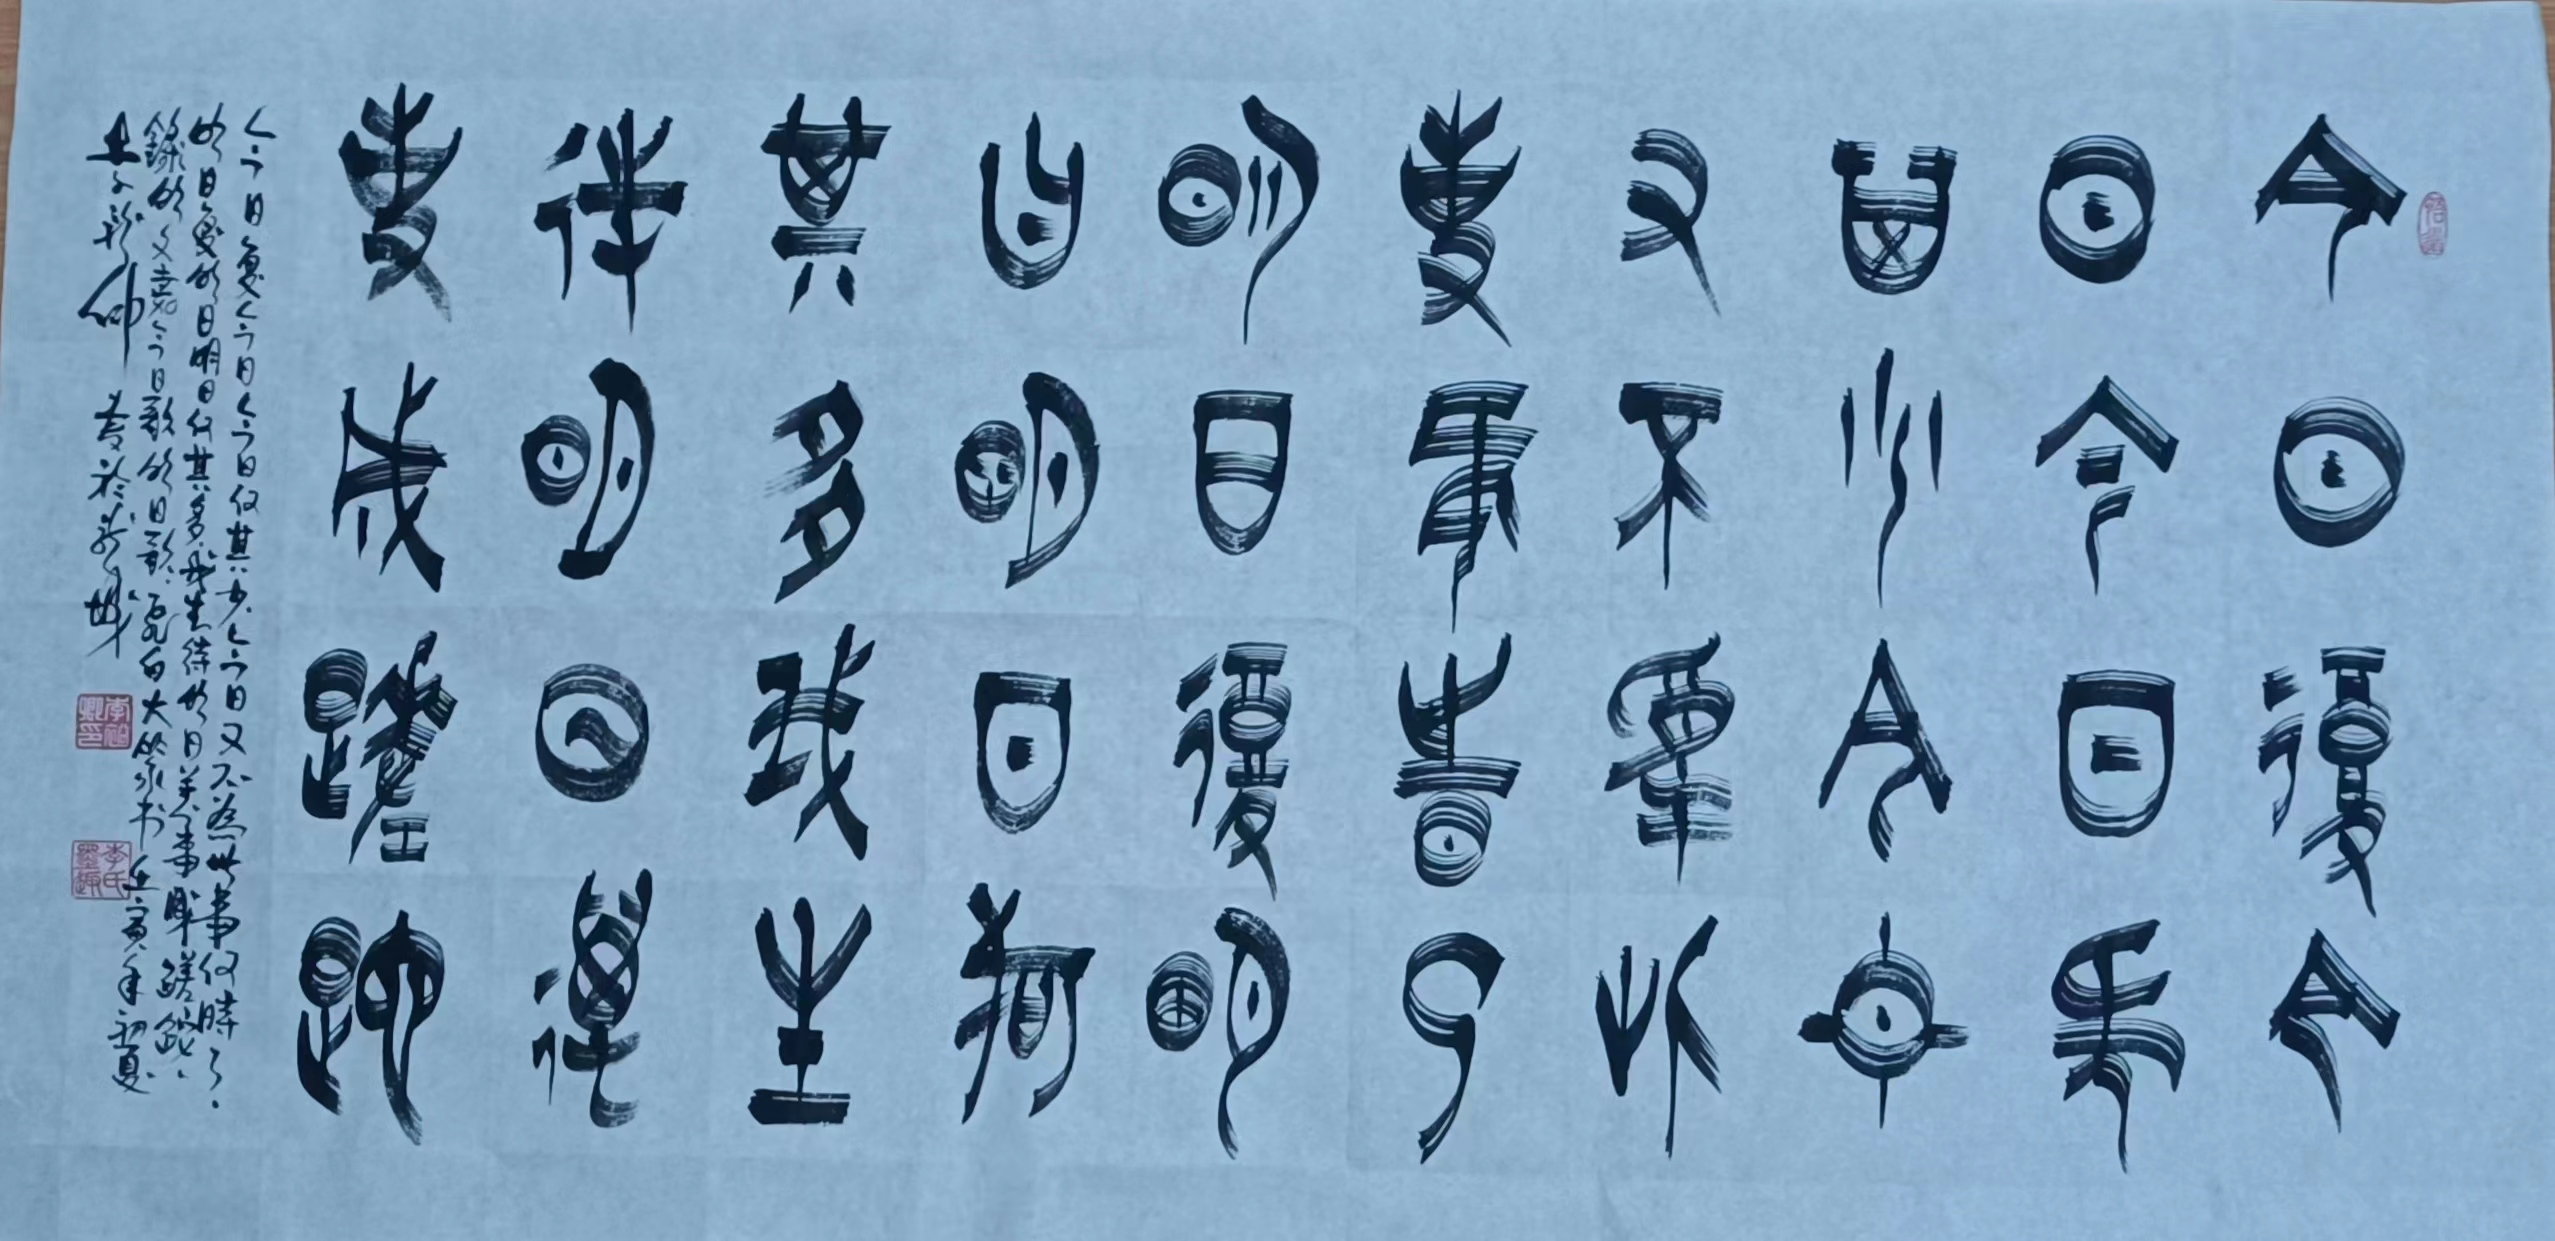 今日復今
日今日何
其少今日
又不為此
事何時了
明日復明
日明日何
其多我生
待明日萬
事成蹉跎
今日復今日今日何其少今日又不為此事何時了
明日復明日明日何其多我生待明日萬事成蹉跎
錄明文嘉今日歌明日歌飛白大篆書壬寅年初夏
書於
李氏墨趣